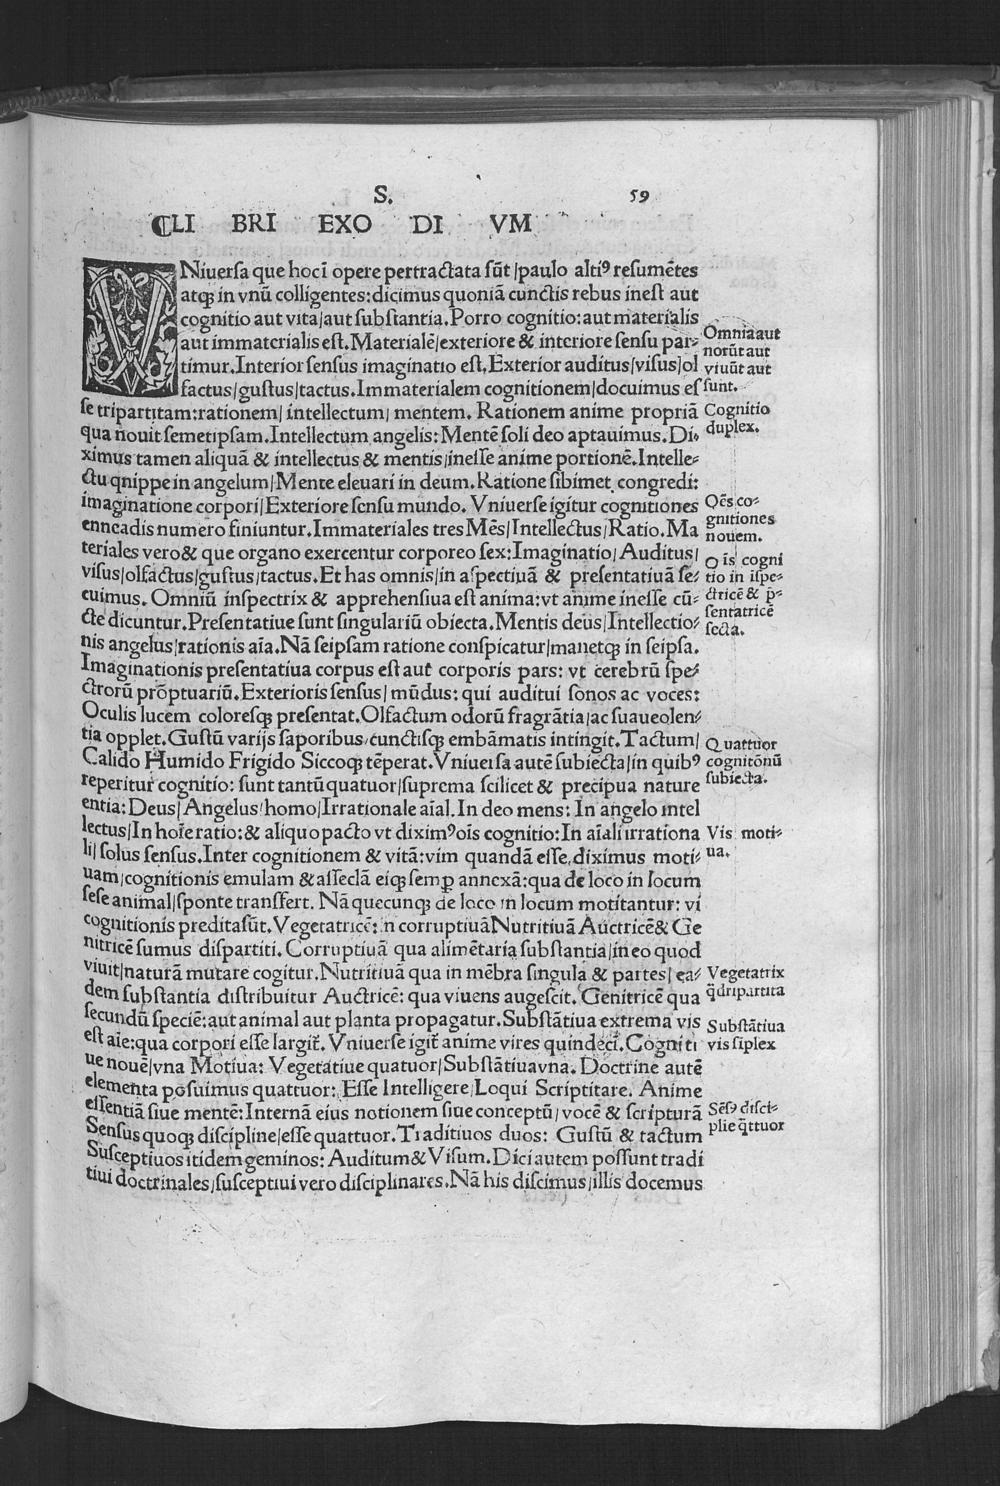 S. 59
¶LI BRI EXO DI VM
VNiuersa que hocī opere pertractata sūt/paulo altiꝰ resumētes
atqꝫ in vnū colligentes:dicimus quoniā cunctis rebus inest aut
cognitio aut vita/aut substantia.Porro cognitio:aut materialis
aut immaterialis est.Materialē/exteriore & interiore sensu par⸗
timur.Interior sensus imaginatio est.Exterior auditus/visus/ol
factus/gustus/tactus.Immaterialem cognitionem/docuimus es
se tripartitam:rationem/ intellectum/ mentem. Rationem anime propriā
qua nouit semetipsam.Intellectum angelis:Mentē soli deo aptauimus.Di⸗
ximus tamen aliquā & intellectus & mentis/inesse anime portionē.Intelle⸗
ctu qnippe in angelum/Mente eleuari in deum.Ratione sibimet congredi:
imaginatione corpori/Exteriore sensu mundo. Vniuerse igitur cognitiones
enneadis numero finiuntur.Immateriales tres Mēs/Intellectus/Ratio.Ma
teriales vero& que organo exercentur corporeo sex:Imaginatio/Auditus/
visus/olfactus/gustus/tactus.Et has omnis/in aspectiuā & presentatiuā se⸗
cuimus. Omniū inspectrix & apprehensiua est anima:vt anime inesse cū⸗
cte dicuntur.Presentatiue sunt singulariū obiecta.Mentis deus/Intellectio⸗
nis angelus/rationis aīa.Nā seipsam ratione conspicatur/manetqꝫ in seipsa.
Imaginationis presentatiua corpus est aut corporis pars: vt cerebrū spe⸗
ctrorū prōptuariū.Exterioris sensus/ mūdus: qui auditui sonos ac voces:
Oculis lucem coloresqꝫ presentat.Olfactum odorū fragrātia/ac suaueolen⸗
tia opplet.Gustū varijs saporibus/cunctisqꝫ embāmatis intingit.Tactum/
Calido Humido Frigido Siccoqꝫ tēperat.Vniuersa autē subiecta/in quibꝰ
reperitur cognitio: sunt tantū quatuor/suprema scilicet & precipua nature
entia:Deus/Angelus/homo/Irrationale aīal.In deo mens: In angelo intel
lectus/In hoīe ratio:& aliquo pacto vt diximꝰoīs cognitio:In aīali irrationa
li/ solus sensus.Inter cognitionem & vitā:vim quandā esse diximus moti⸗
uam/cognitionis emulam & asseclā eiqꝫ semꝑ annexā:qua de loco in locum
sese animal/sponte transfert. Nā quecunqꝫ de loco in locum motitantur: vi
cognitionis predita sūt.Vegetatricē: in corruptiuāNutritiuā Auctricē& Ge
nitricē sumus dispartiti. Corruptiuā qua alimētaria substantia/in eo quod
viuit/naturā mutare cogitur.Nutritiuā qua in mēbra singula & partes/ ea⸗
dem substantia distribuitur Auctricē: qua viuens augescit. Genitricē qua
secundū speciē:aut animal aut planta propagatur.Substātiua extrema vis
est aīe:qua corpori esse largit̄. Vniuerse igit̄ anime vires quindecī.Cogniti
ue nouē/vna Motiua: Vegetatiue quatuor/Substātiuavna. Doctrine autē
elementa posuimus quattuor: Esse Intelligere/Loqui Scriptitare. Anime
essentiā siue mentē:Internā eius notionem siue conceptū/ vocē & scripturā
Sensus quoqꝫ discipline/esse quattuor.Traditiuos duos: Gustū & tactum
Susceptiuos itidem geminos: Auditum& Visum.Dici autem possunt tradi
tiui doctrinales/susceptiui vero disciplinares.Nā his discimus/illis docemus
Omnia aut
norūt aut
viuūt aut
sunt.
Cognitio
duplex.
Oēs co⸗
gnitiones
nouem.
Oīs cogni
tio in ispe⸗
ctricē & p̄⸗
sentatricē
secta.
Quattuor
cognitōnū
subiecta.
Vis moti⸗
ua.
Vegetatrix
q̄dripartita
Substātiua
vis siplex
Sēsꝰ disci⸗
plie q̄ttuor